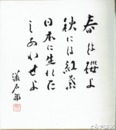 春は桜よ
秋には紅葉
日本に生れた
しあわせよ